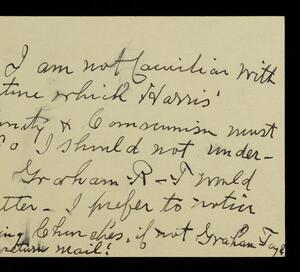 I am not familiar with
tine which Harris'
& Communism must
So I should not under-
Graham R-T would
tter. - I prefer to
ing Churches, if not Graham Tayl
return mail!